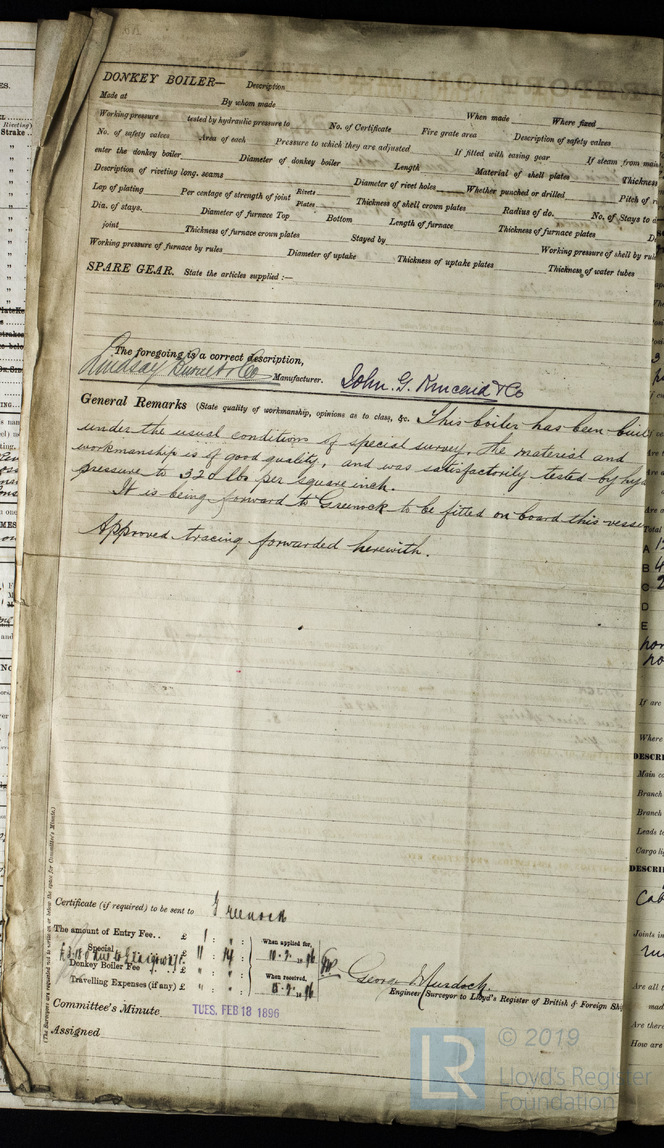 DONKEY BOILER— Description
Made at By whom made When made Where fixed
Working pressure tested by hydraulic pressure to No. of Certificate Fire grate area Description of safety valves
No. of safety valves Area of each Pressure to which they are adjusted If fitted with easing gear If steam from main
enter the donkey boiler Diameter of donkey boiler Length Material of shell plates Thickness
Description of riveting long. seams Diameter of rivet holes Whether punched or drilled Pitch of
Lap of plating Per centage of strength of joint Rivets Plates Thickness of shell crown plates Radius of do. No. of Stays to
Dia. of stays. Diameter of furnace Top Bottom Length of furnace Thickness of furnace plates
joint Thickness of furnace crown plates Stayed by Working pressure of shell by
Working pressure of furnace by rules Diameter of uptake Thickness of uptake plates Thickness of water tubes
SPARE GEAR. State the articles supplied :—
The foregoing is a correct description,
Lindsay Burnet & Co Manufacturer. John. G. Kincaid & Co
General Remarks (State quality of workmanship, opinions as to class, &c. This boiler has been built
under the usual conditions of special survey. The material and
workmanship is of good quality, and was satisfactorily tested by
pressure to 320 lbs per square inch.
It is being forward to Greenock to be fitted on board this
Approved tracing forwarded herewith.
Certificate (if required) to be sent to Greenock
The amount of Entry Fee.. £ 1 : " : " When applied for,
Special £ 11 : 14 : "
Donkey Boiler Fee £ : : When received,
Travelling Expenses (if any) £ : :
George Murdoch.
Engineer Surveyor to Lloyd's Register of British & Foreign
Committee's Minute TUES. FEB 18 1896
Assigned
© 2019
LR Lloyd's Register
Foundation